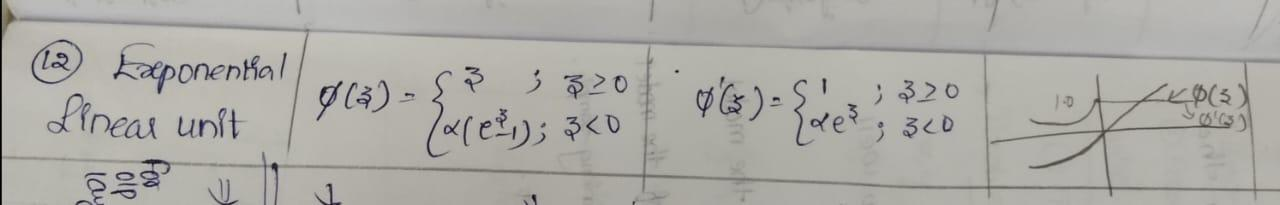 12 Exponential
Linear unit
φ(z) = { z ; z ≥ 0
α(e^z-1); z < 0
φ'(z) = { 1 ; z ≥ 0
αe^z ; z < 0
1.0
φ(z)
φ'(z)